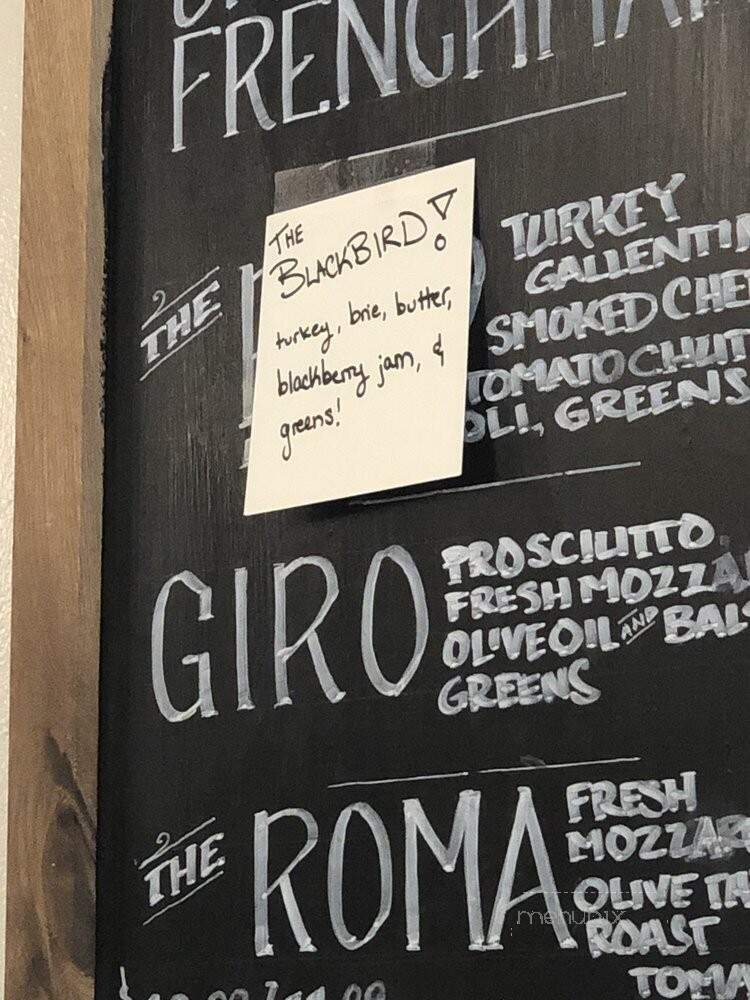 FRENCHMAN
THE
BLACKBIRD!
turkey, brie, butter,
blackberry jam, &
greens!
THE
TURKEY
GALLENTI
SMOKED CHE
TOMATO CHUT
OLI, GREENS
GIRO
PROSCIUTTO
FRESH MOZZA
OLIVE OIL AND BALS
GREENS
THE
ROMA
FRESH
MOZZAR
OLIVE TA
ROAST
TOMA
menupix